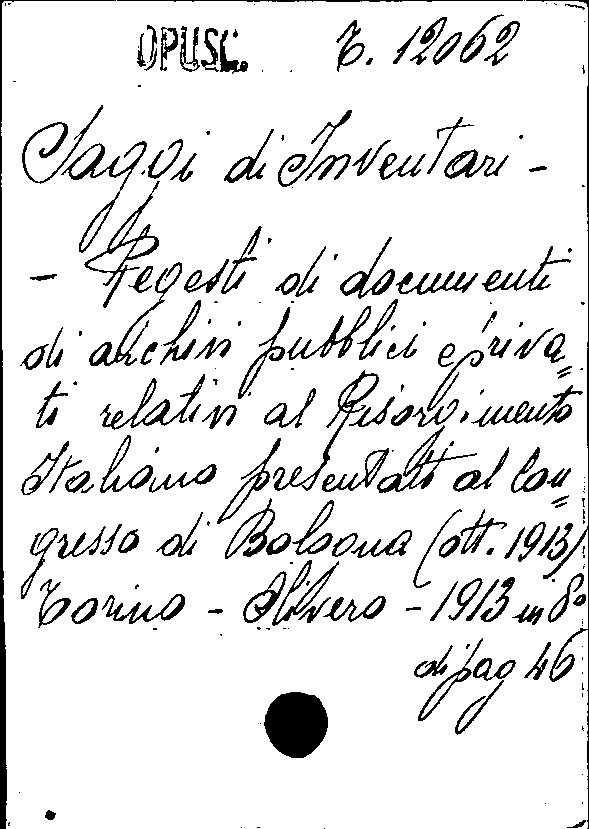 OPUSC. T. 12062
Saggi di Inventari -
- Regesti di documenti
di archivi pubblici e priva=
ti relativi al Risorgimento
Italiano presentati al Con=
gresso di Bologna (ott. 1913)
Torino - Olivero - 1913 in 8°
di pag 46